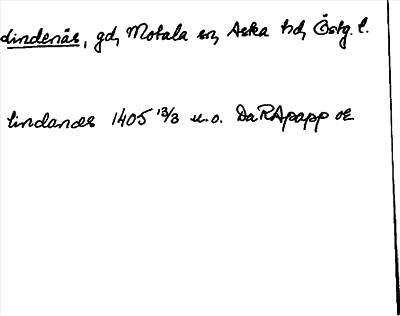 Lindenäs, gd, Motala sn, Aska hd, Östg. l.
lindanæs 1405 13/3 u.o. DaRApapp oE